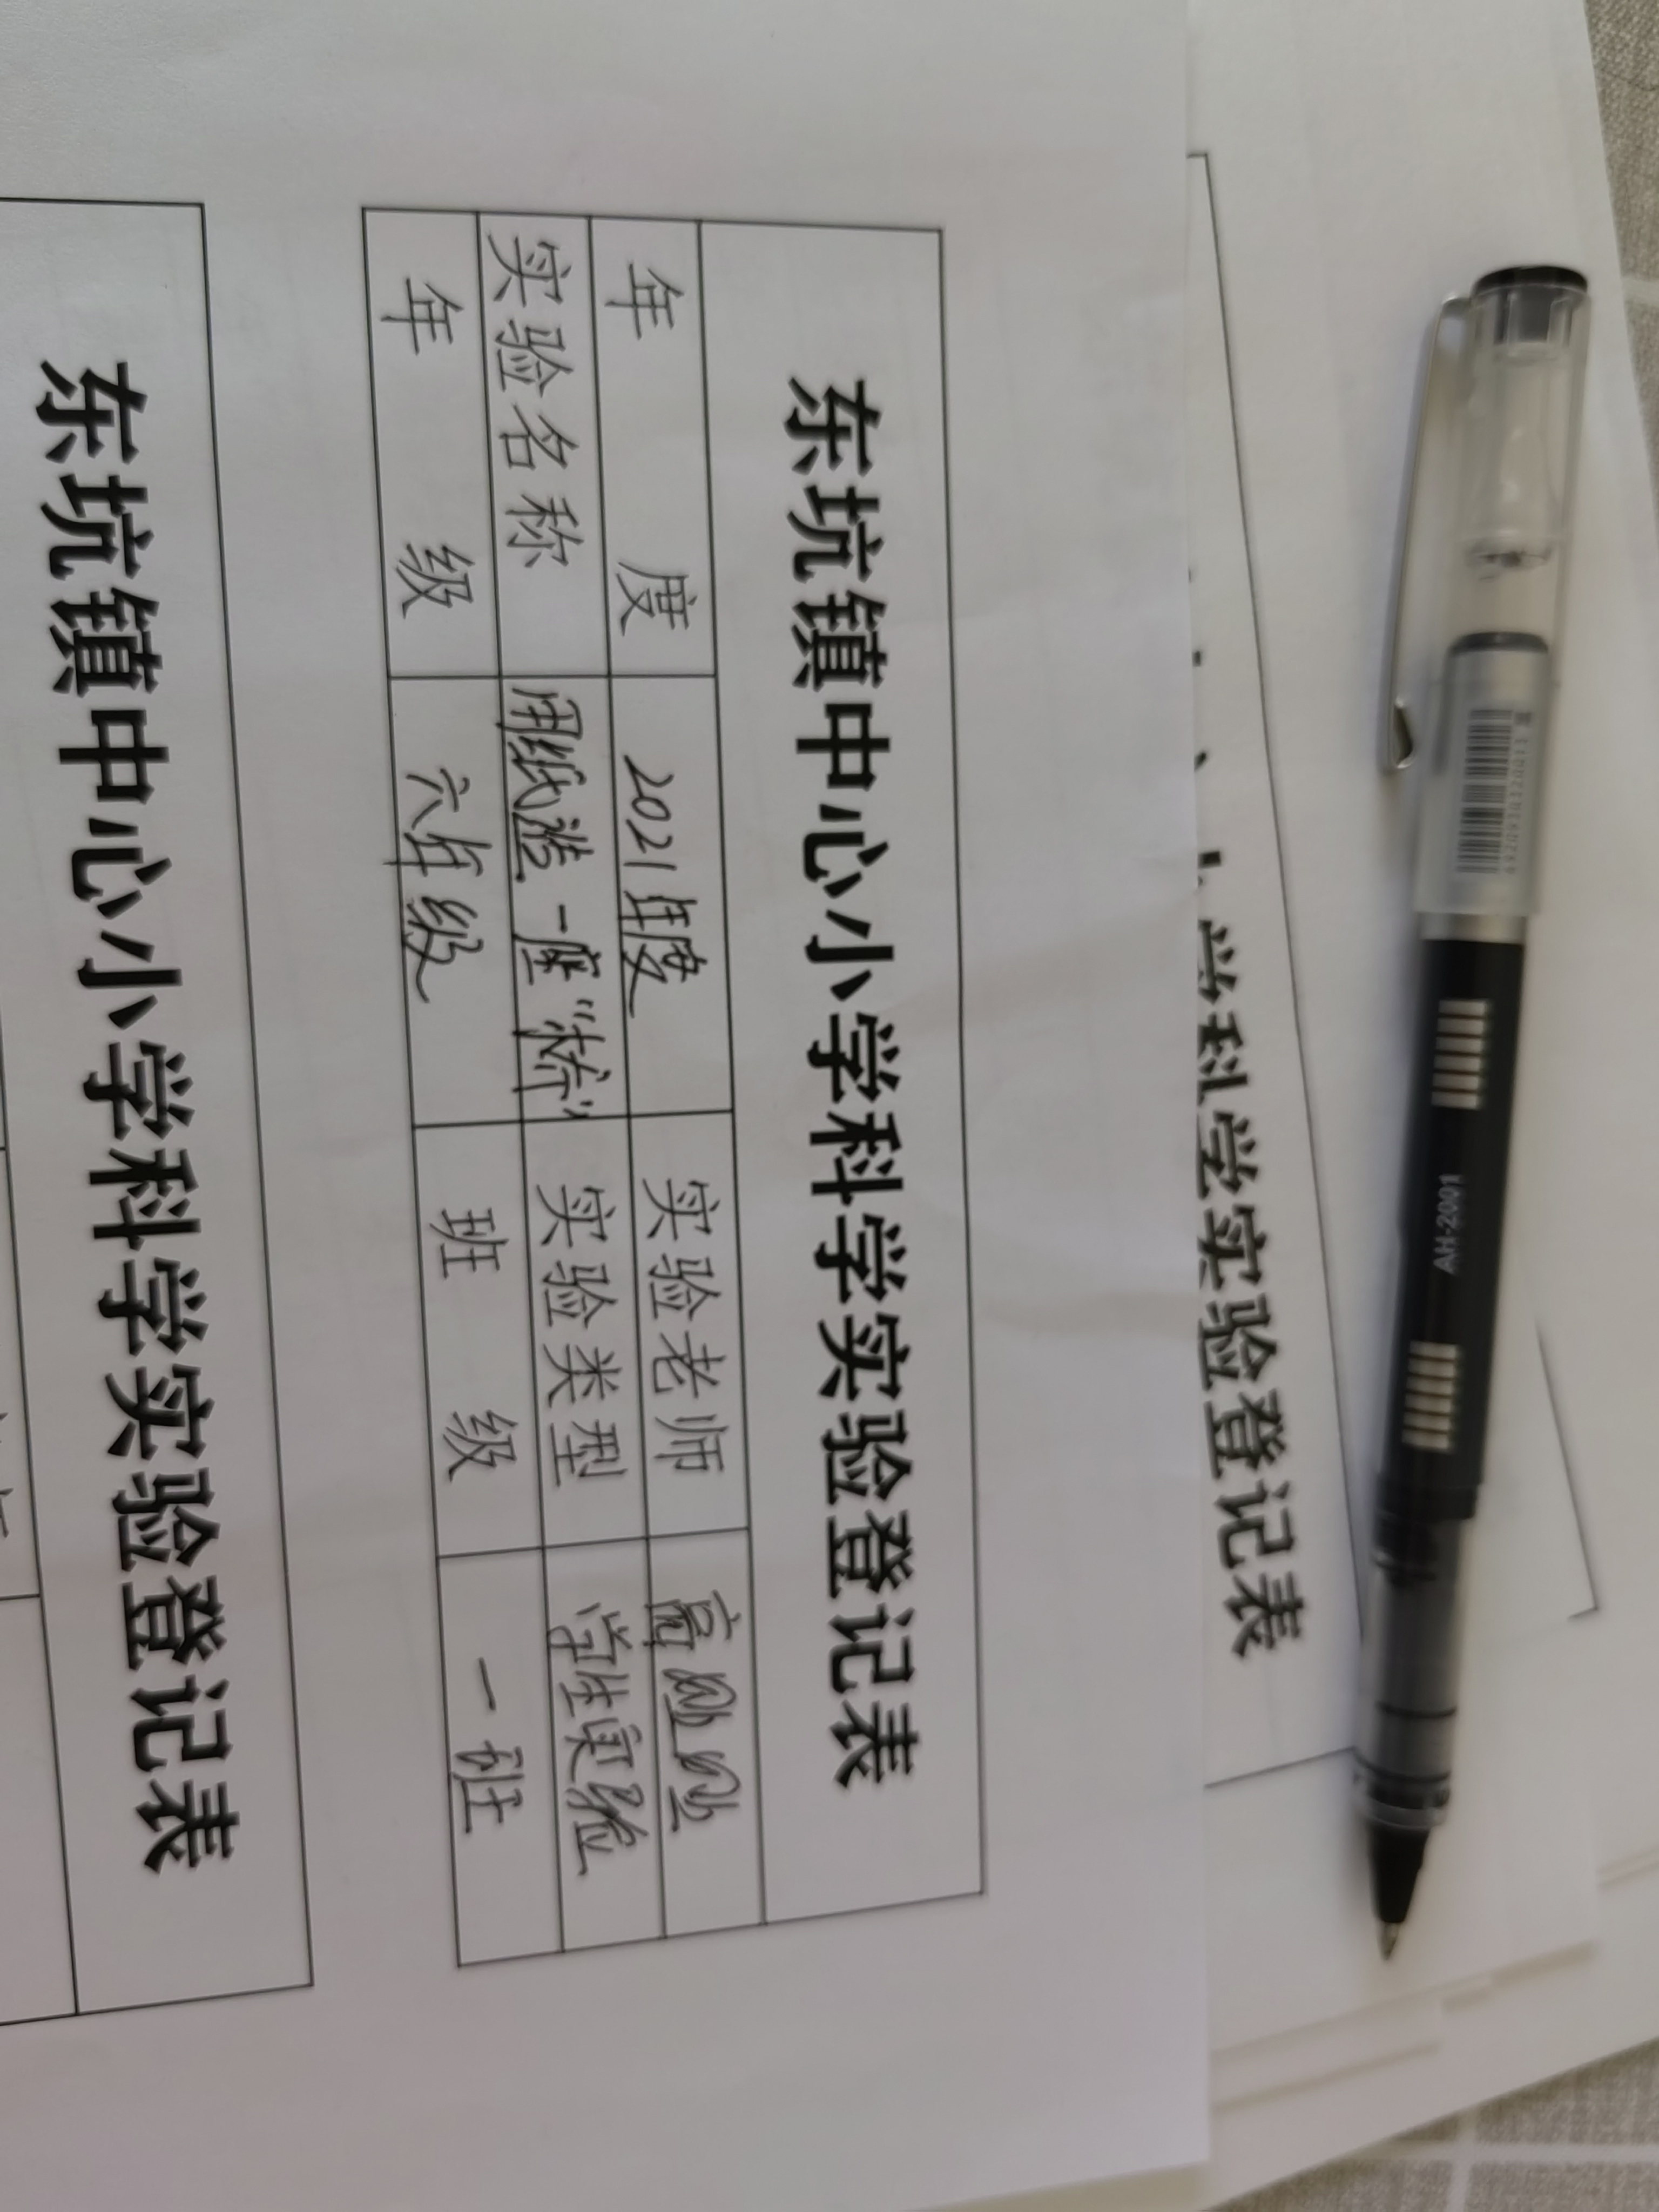 东坑镇中心小学科学实验登记表
年度 2021年度 实验老师
实验名称 用纸造一座“桥” 实验类型 学生实验
年级 六年级 班级 一班
东坑镇中心小学科学实验登记表
学科学实验登记表
AH-2001